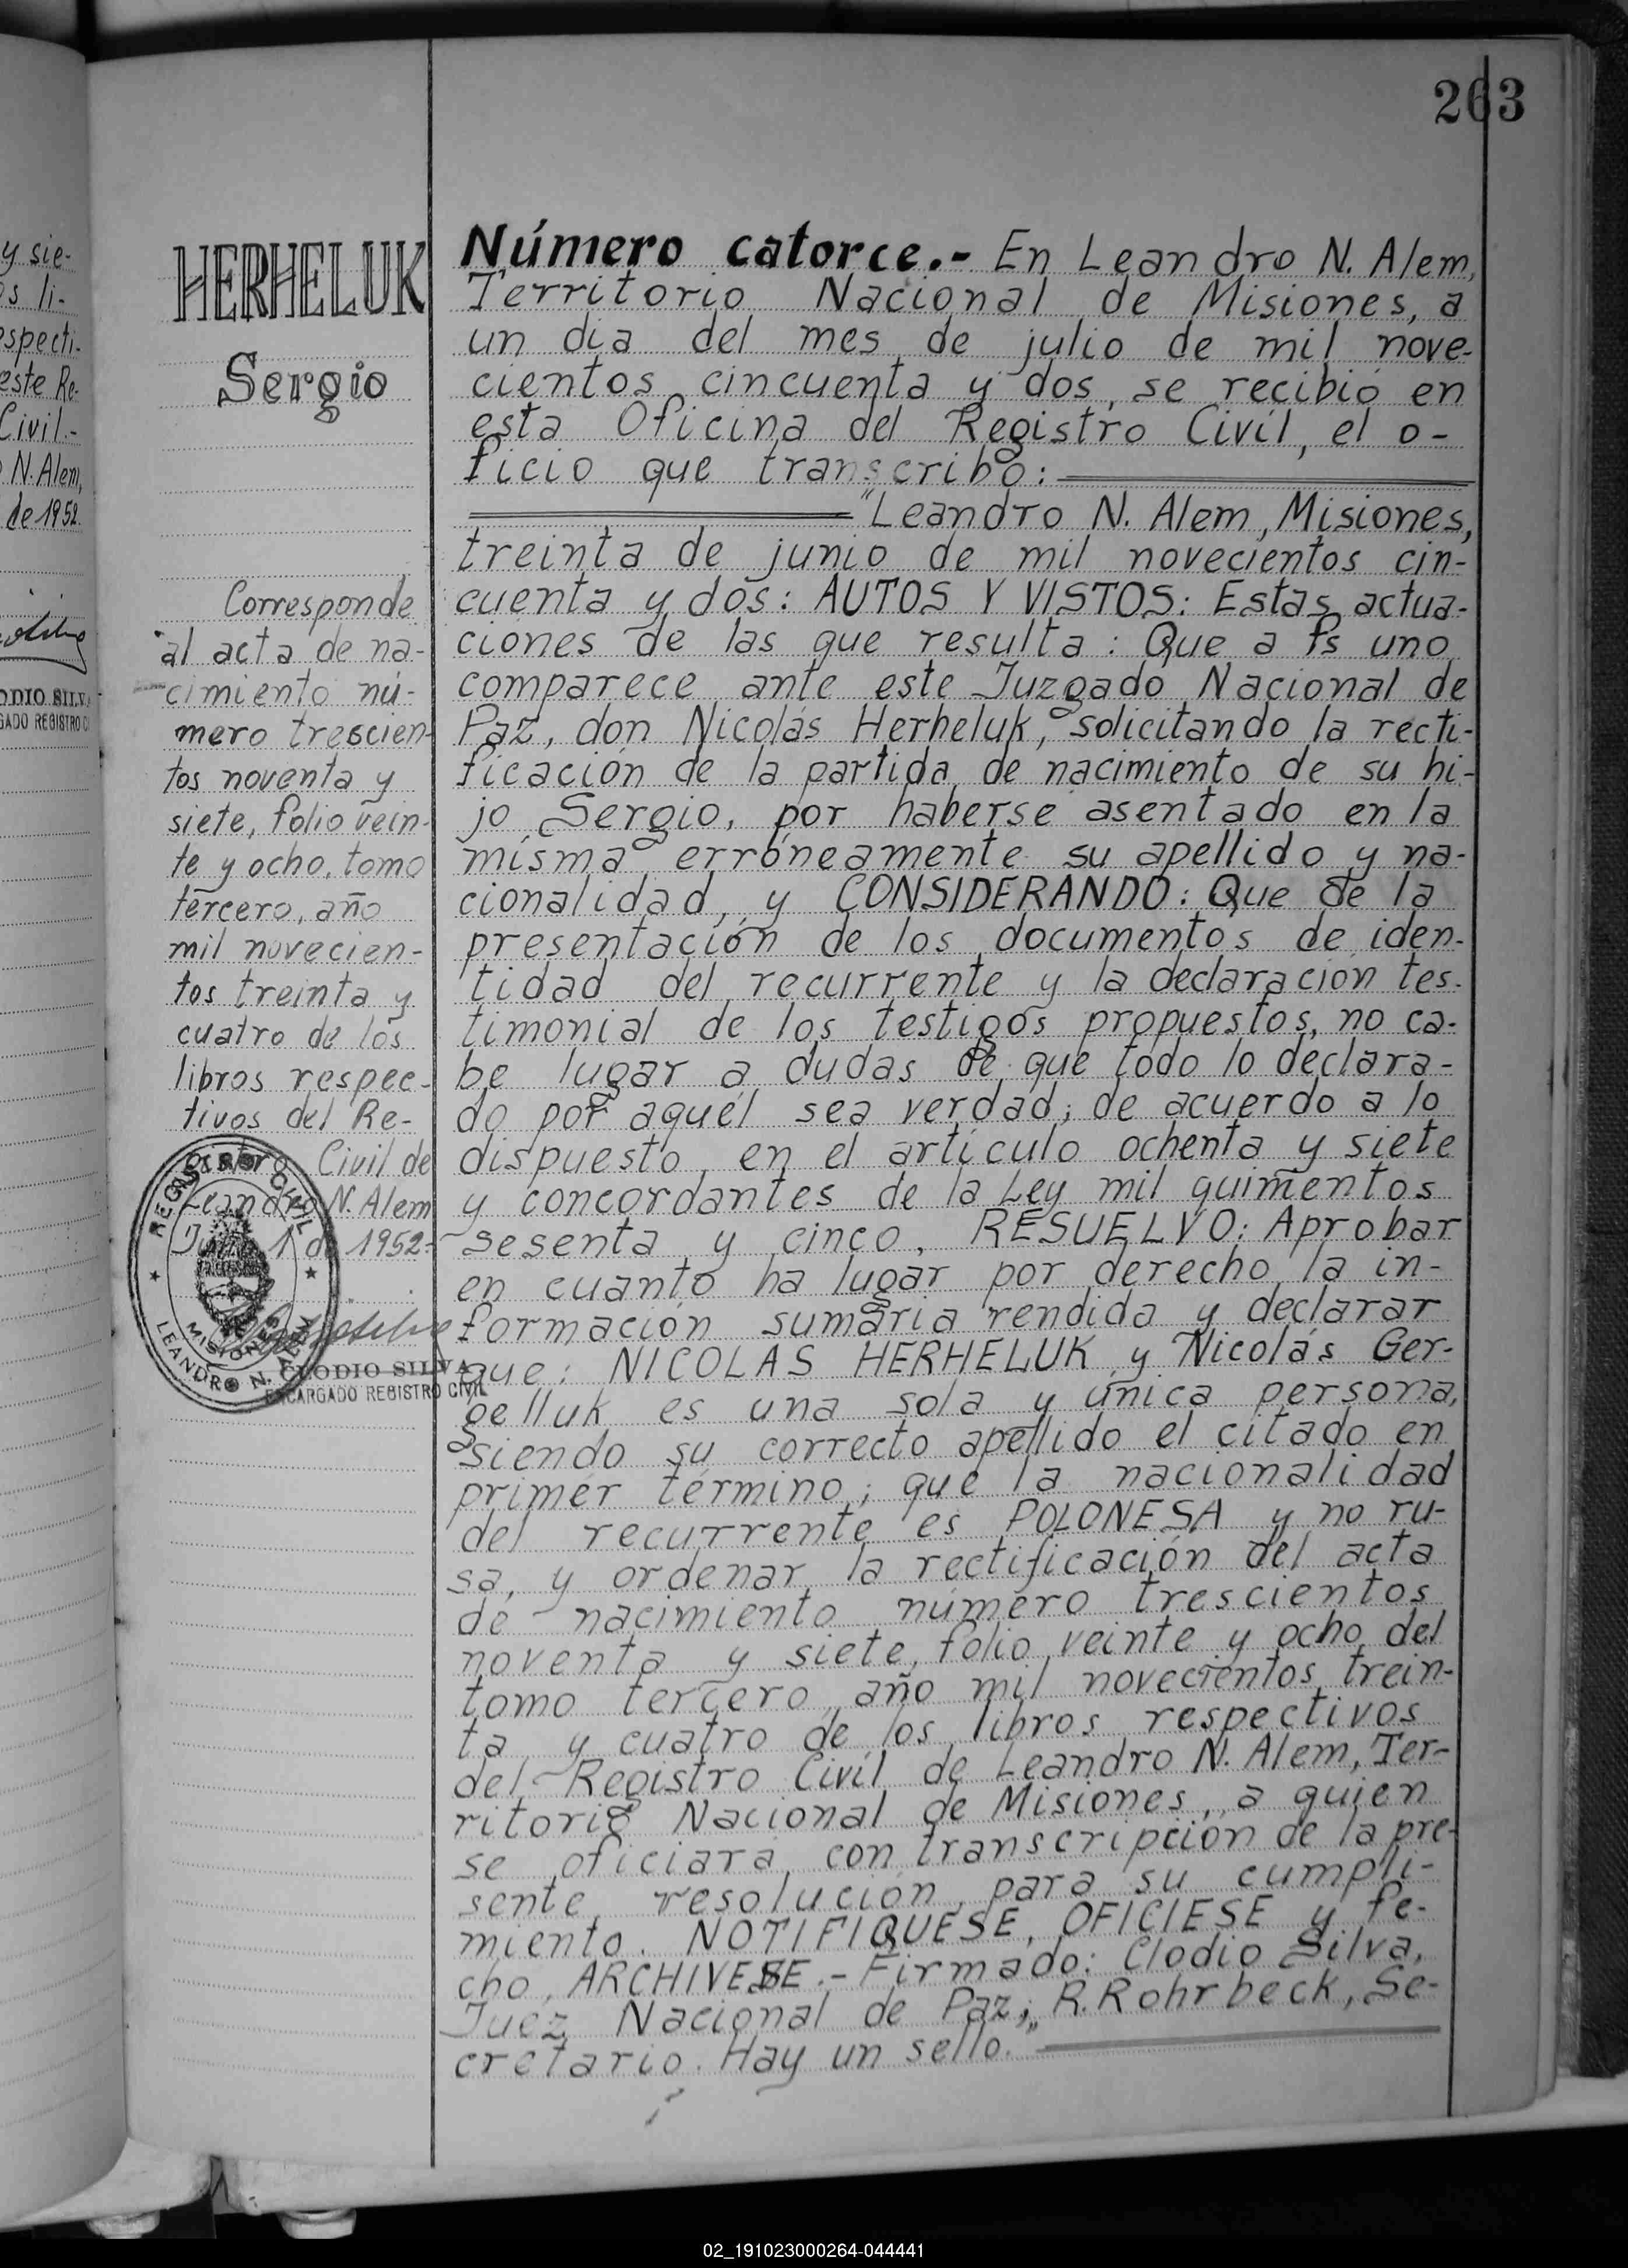 263
y sie-
os li-
especti-
este Re-
Civil.-
N. Alem,
de 1952.
ODIO SILV
GADO REGISTRO C
HERHELUK
Sergio
Corresponde
al acta de na-
cimiento nú-
mero trescien-
tos noventa y
siete, folio vein-
te y ocho, tomo
tercero, año
mil novecien-
tos treinta y
cuatro de los
libros respec-
tivos del Re-
gistro Civil de
Leandro N. Alem
Julio 1 de 1952.-
REGISTRO CIVIL
MISIONES
LEANDRO N. ALEM
CLODIO SILVA
ENCARGADO REGISTRO CIVIL
Número catorce.- En Leandro N. Alem,
Territorio Nacional de Misiones, a
un dia del mes de julio de mil nove-
cientos cincuenta y dos, se recibió en
esta Oficina del Registro Civil, el o-
ficio que transcribo:
"Leandro N. Alem, Misiones,
treinta de junio de mil novecientos cin-
cuenta y dos: AUTOS Y VISTOS: Estas actua-
ciones de las que resulta: Que a fs uno
comparece ante este Juzgado Nacional de
Paz, don Nicolás Herheluk, solicitando la recti-
ficación de la partida de nacimiento de su hi-
jo Sergio, por haberse asentado en la
misma erróneamente su apellido y na-
cionalidad, y CONSIDERANDO: Que de la
presentación de los documentos de iden-
tidad del recurrente y la declaración tes-
timonial de los testigos propuestos, no ca-
be lugar a dudas de que todo lo declara-
do por aquél sea verdad; de acuerdo a lo
dispuesto en el artículo ochenta y siete
y concordantes de la Ley mil quinientos
sesenta y cinco, RESUELVO: Aprobar
en cuanto ha lugar por derecho la in-
formación sumaria rendida y declarar
que: NICOLAS HERHELUK y Nicolás Ger-
gelluk es una sola y única persona,
siendo su correcto apellido el citado en
primer término; que la nacionalidad
del recurrente es POLONESA y no ru-
sa, y ordenar la rectificación del acta
de nacimiento número trescientos
noventa y siete, folio veinte y ocho del
tomo tercero, año mil novecientos trein-
ta y cuatro de los libros respectivos
del Registro Civil de Leandro N. Alem, Ter-
ritorio Nacional de Misiones, a quien
se oficiará con transcripción de la pre-
sente resolución para su cumpli-
miento. NOTIFIQUESE, OFICIESE y fe-
cho, ARCHIVESE.- Firmado: Clodio Silva,
Juez Nacional de Paz; R. Rohrbeck, Se-
cretario. Hay un sello."
02_191023000264-044441